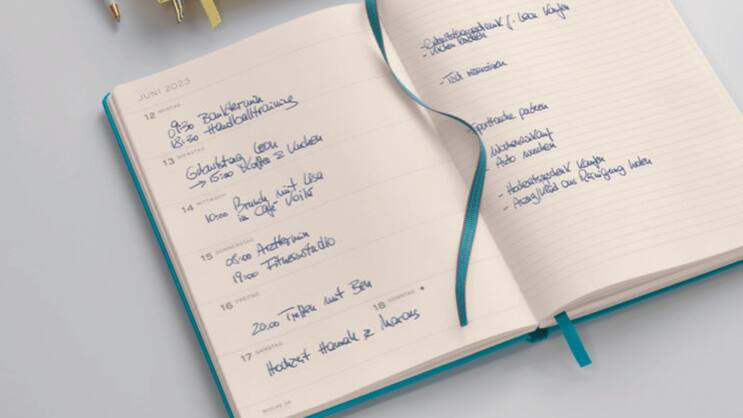 JUNI 2023
12 MONTAG
9:30 Banktermin
18:30 Handballtraining
13 DIENSTAG
Geburtstag Leon
→ 15:00 Kaffee & Kuchen
14 MITTWOCH
10:00 Brunch mit Lisa
im Café Voilà
15 DONNERSTAG
08:00 Arzttermin
19:00 Fitnessstudio
16 FREITAG
20:00 Treffen mit Ben
17 SAMSTAG
18 SONNTAG
Hochzeit Hannah & Marcus
- Geburtstagsgeschenk f. Leon kaufen
- Kuchen backen
- Tisch reservieren
- Sporttasche packen
- Wocheneinkauf
- Auto waschen
- Hochzeitsgeschenk kaufen
- Anzug/Kleid aus Reinigung holen